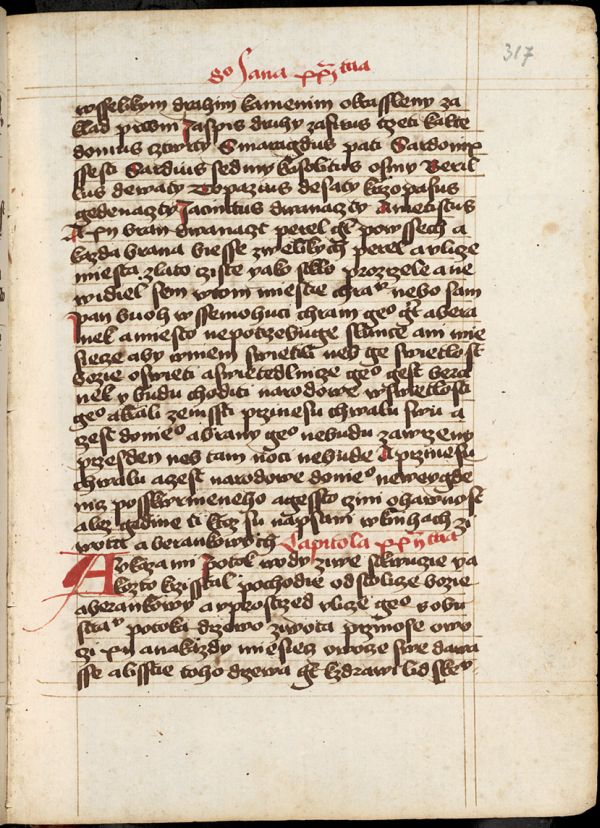 go Jana xxi tia
317
wsselikym drahim kamenim okrassleny za
klad prwni Jaspis druhy zafirus trzeti kalce
donius cztwrty Smaragdus pati Sardonix
ssesti Sardius sedmy krisolitus osmy Beril
lus dewaty Topazius desaty krzopasus
gedenazty Jacinctus dwanazty Ametistus
A xii bran dwanazt perel gt powssech a
kazda brana biesse zwelikych perel a vlicze
miesta zlato cziste yako sklo prozrzele a ne
widiel sem wtom miestie chra nebo sam
pan buoh wssemohuci chram geo gt abera
nek a miesto nepotrzebuge slunce ani mie
siecze aby wniem swietili neb ge swietlost
bozie oswieti a swiedlnicze geo gest bera
nek y budu choditi narodowe wswietlosti
geo a krali zemssti przinesu chwalu swu a
czest donieo a brany geo nebudu zawrzeny
przes den neb tam noci nebude A przinesu
chwalu a czest narodowe donieo newegde
nicz posskwrneneho a gessto czini ohawnost
a lez gedine ti ktoz su napsani wknihach zi
wota a berankowych Capitola xxii tia
A vkaza mi potok wody ziwe stkwucie ya
kozto krzisstal pochodie odstolicze bozie
a berankowy a vprostrzed vlicze geo z obu
stra potoka drzewo ziwota przinose owo
cze xii na kazdy miesiecz owocze swe dawa
sse a listie toho drzewa gt kzdrawi lidske